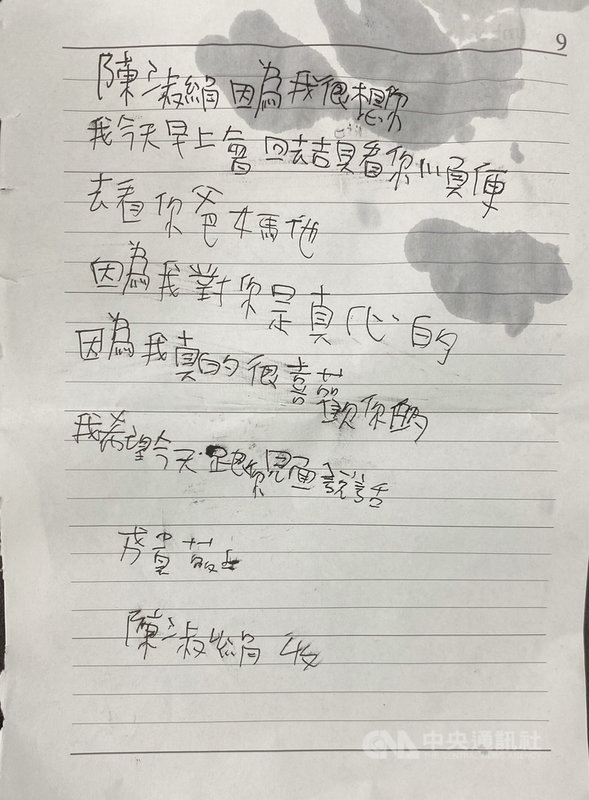 9
陳淑絹因為我很想你
我今天早上會回去員看你順便
去看你爸媽他
因為我對你是真心的
因為我真的很喜歡你的
我希望今天跑你見面說話
貴
陳淑絹 收
中央通訊社